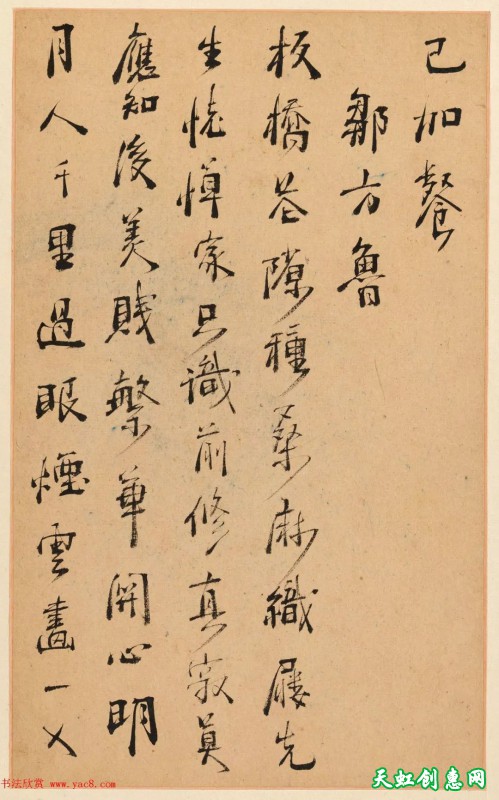 已加餐
鄒方魯
板橋花隙種桑麻織屨先
生惲家只識前修真寂寞
應知後美賤繁華開心明
月人千里過眼煙雲畫一叉
书法欣赏 www.yac8.com
天虹创意网